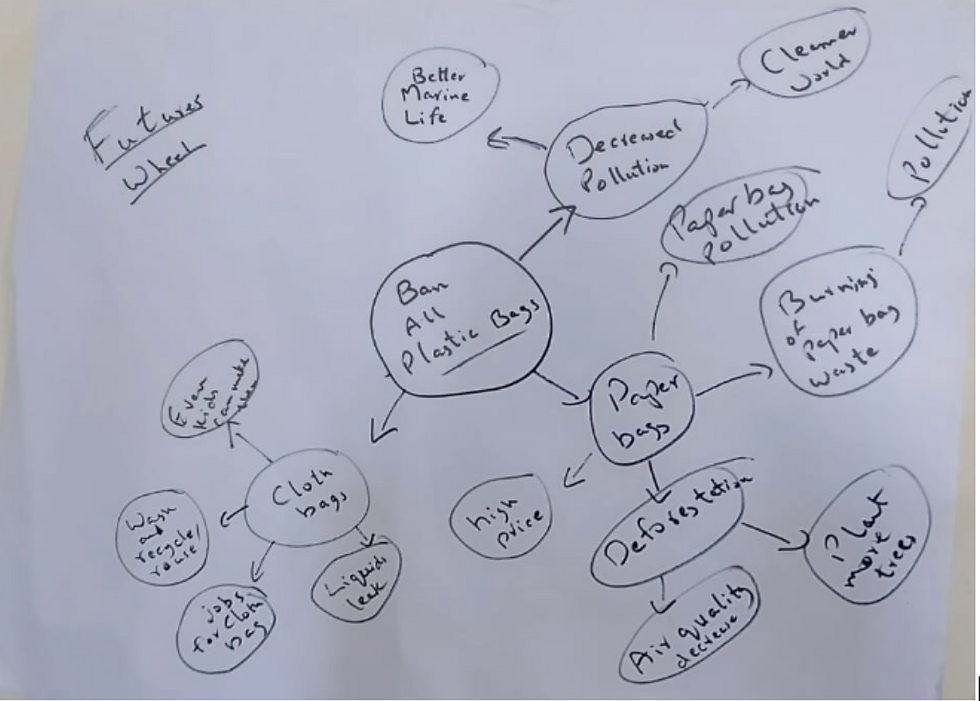 Futures
Wheel
Better
Marine
Life
Decreased
Pollution
Cleaner
World
Pollution
Paper bag
Pollution
Ban
All
Plastic Bags
Burning
of
Paper bag
waste
Paper
bags
Even
kids
can make
them
Cloth
bags
Wash
and
recycle/
reuse
jobs
for cloth
bag
Liquids
leak
high
price
Deforestation
Plant
more
trees
Air quality
decrease